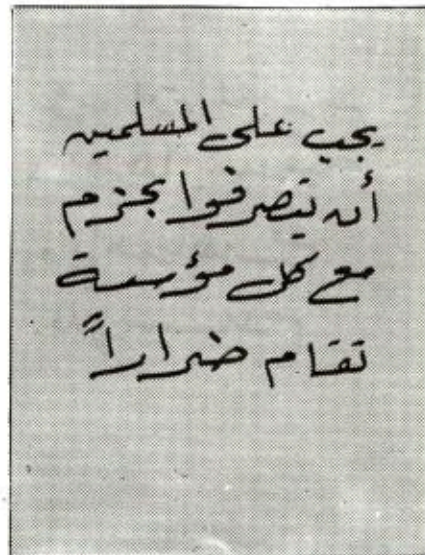 يجب على المسلمين
أن يتصرفوا بحزم
مع كل مؤسسة
تقام ضراراً